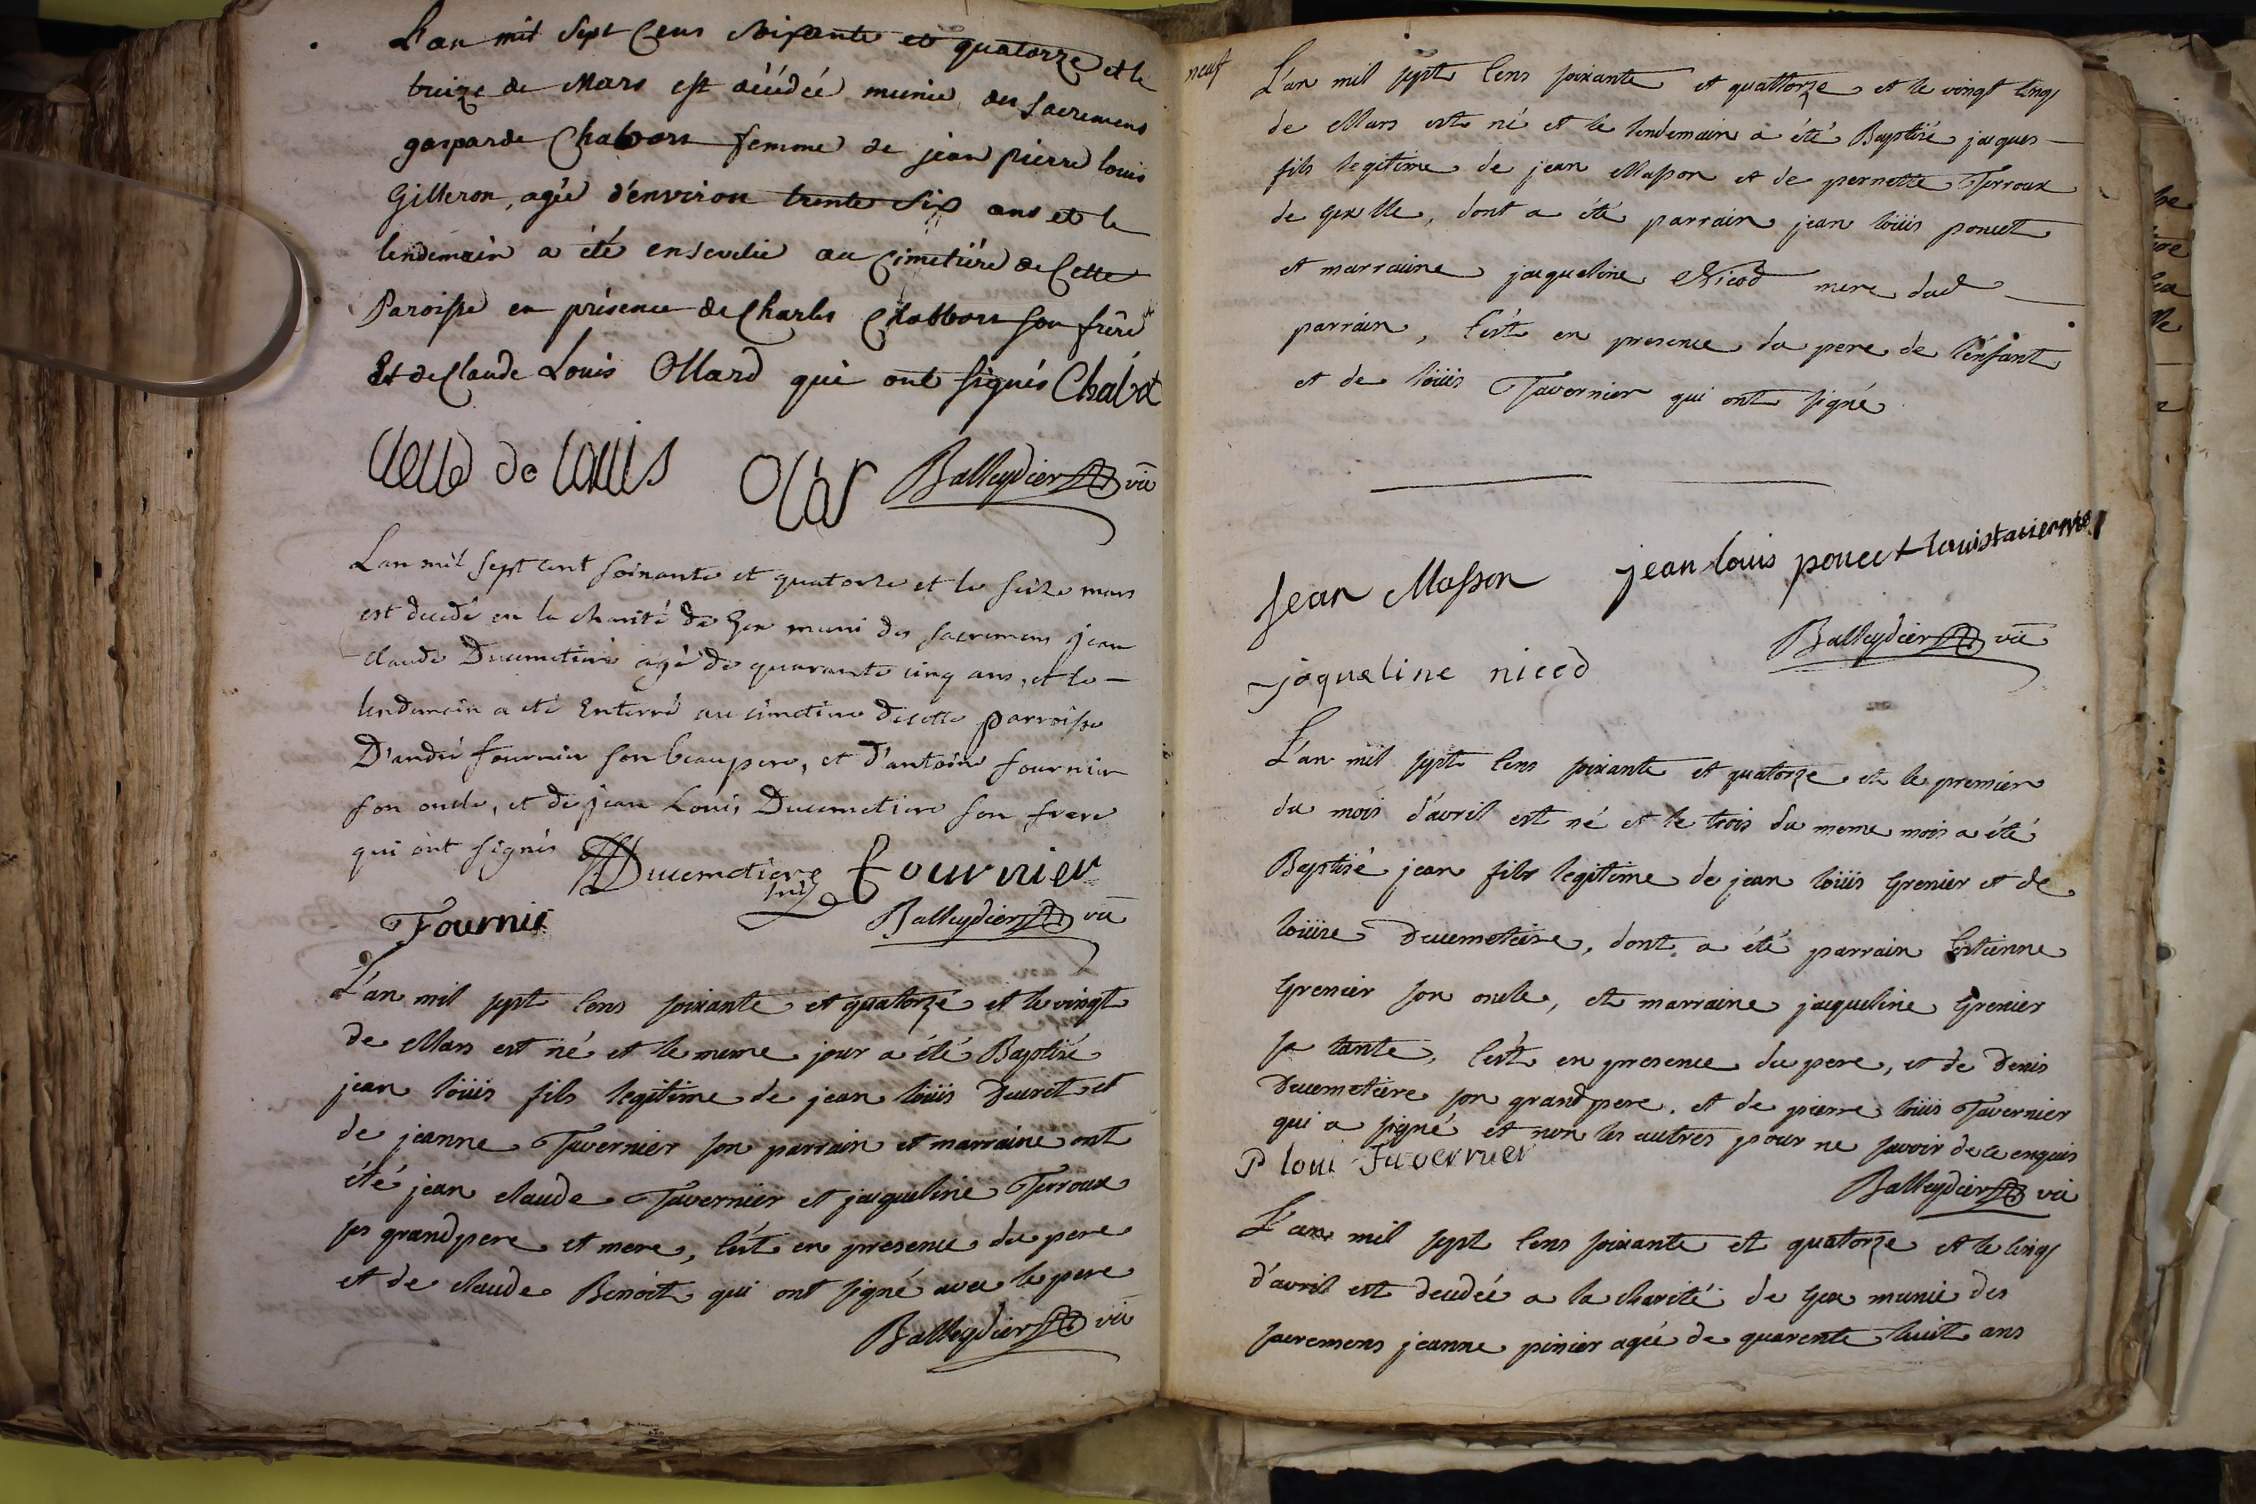 L'an mil Sept Cens Soixante et quatorze et le
treize de Mars est décédée munie des Sacremens
gasparde Chabors femme de jean pierre louis
Gilleron, agée d'environ trente Six ans et le
lendemain a été ensevelie au Cimetière de Cette
Paroisse en présence de Charles Chabbors son frère
Et de Claude Louis Ollard qui ont signés Chabot
de louis Olar Balleydier vic
L'an mil sept cent soixante et quatorze et le seize mars
est decedé en la charité de Gex muni des sacremens jean
claude Ducimetiere agé de quarante cinq ans, et le
lendemain a été Enterré au cimetiere de cette parroisse
D'andré fournier son beaupere, et d'antoine fournier
son oncle, et de jean Louis Ducimetiere son frere
qui ont signés Ducemetiere fournier
Fournie Balleydier vic
L'an mil sept Cens soixante et quatorze et le vingt
de Mars est né et le meme jour a été Baptisé
jean loüis fils legitime de jean loüis Ducret et
de jeanne Tavernier son parrain et marraine ont
été jean claude Tavernier et jacqueline Terroux
ses grandpere et mere, C'est en presence du pere
et de claude Benoit qui ont signé avec le pere
Balleydier vic
neuf
L'an mil sept Cens soixante et quattorze et le vingt Cinq
de Mars est né et le lendemain a été Baptisé jacques
fils legitime de jean Masson et de pernette Terroux
de Gex , dont a été parrain jean loüis poncet
et marraine jacqueline Nicod mere dud
parrain, C'est en presence du pere de l'enfant
et de loüis Tavernier qui ont signé
jean Masson jean louis poncet louis tavernier
Balleydier vic
jaqueline nicod
L'an mil sept Cens soixante et quatorze et le premier
du mois d'avril est né et le trois du meme mois a été
Baptisé jean fils legitime de jean loüis Grenier et de
loüise Ducemetiere, dont a été parrain Estienne
Grenier son oncle, et marraine jacqueline Grenier
sa tante, C'est en presence du pere, et de Denis
Ducemetiere son grandpere, et de pierre loüis Tavernier
qui a signé et non les autres pour ne savoir de ce enquis
P loui Tavernier
Balleydier vic
L'an mil sept Cens soixante et quatorze et le Cinq
d'avril est decedée a la charité de Gex munie des
sacremens jeanne pinier agée de quarente huit ans